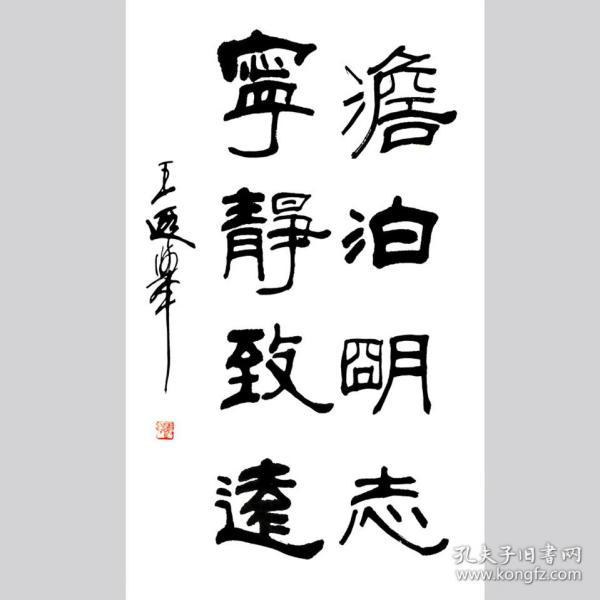 澹泊明志
寧靜致遠
王遐舉
孔夫子旧书网
www.kongfz.com